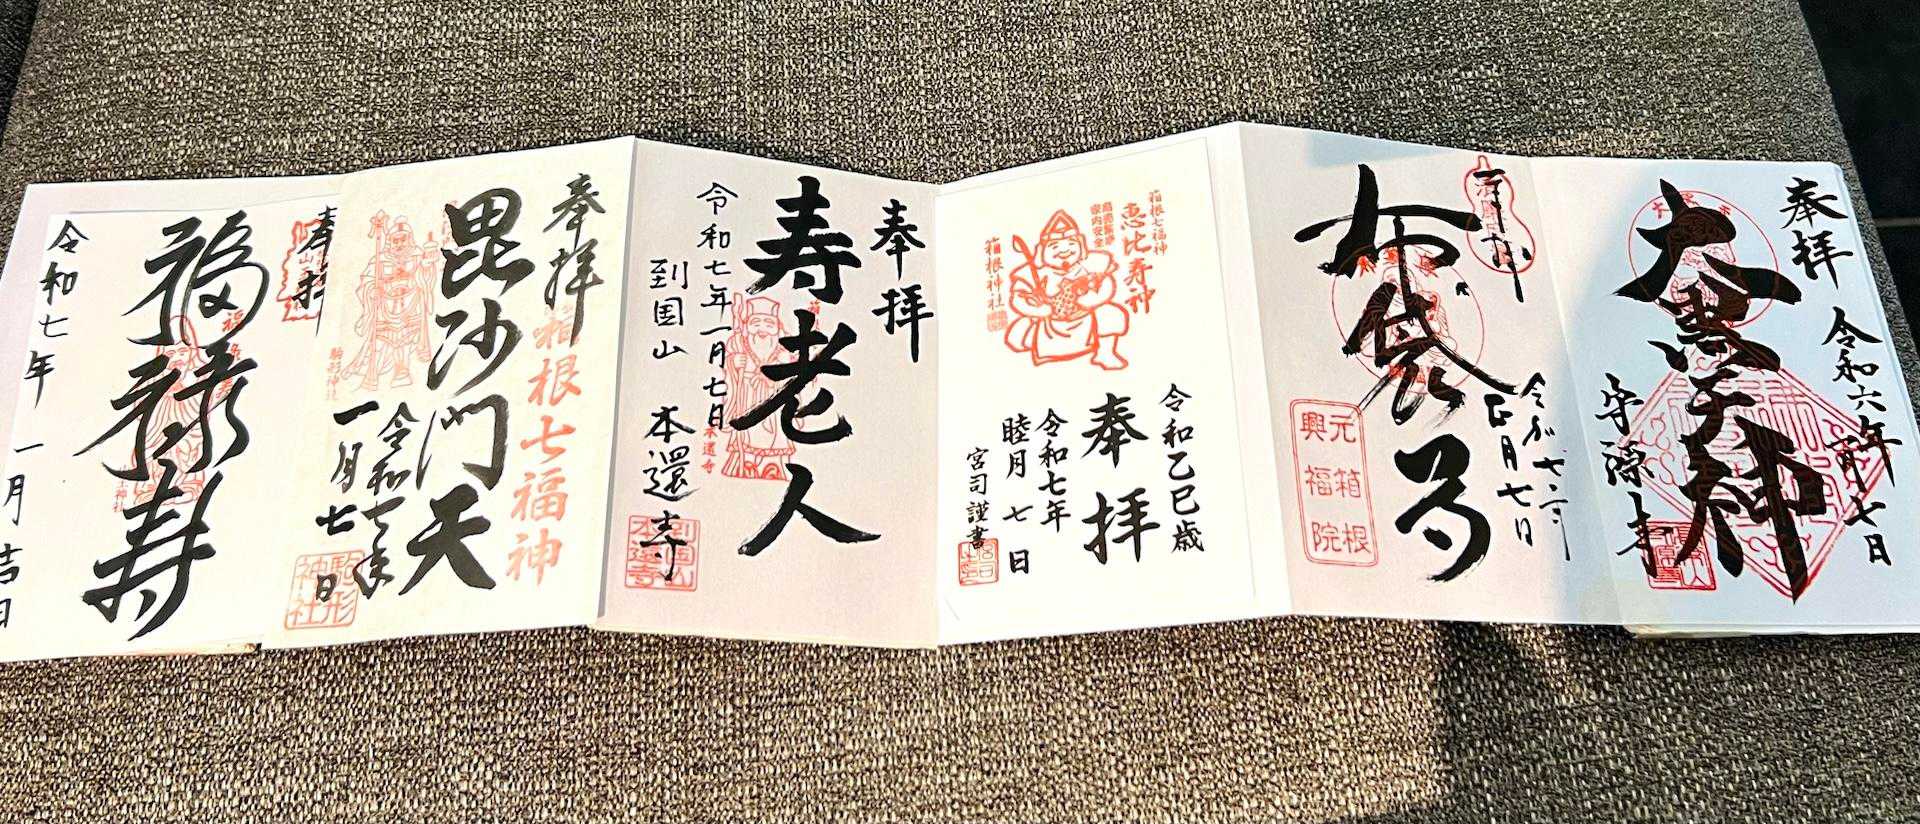 奉拝
大黒天神
令和六年
一月七日
守源寺
布袋尊
正月七日
元箱根
興福院
箱根七福神
恵比寿神
商売繁昌
家内安全
箱根神社
令和乙巳歳
奉拝
令和七年
睦月七日
宮司謹書
奉拝
寿老人
令和七年一月七日
到国山
本還寺
本還寺
奉拝
毘沙門天
箱根七福神
駒形神社
令和七年
一月七日
駒形神社
奉拝
福禄寿
令和七年一月吉日